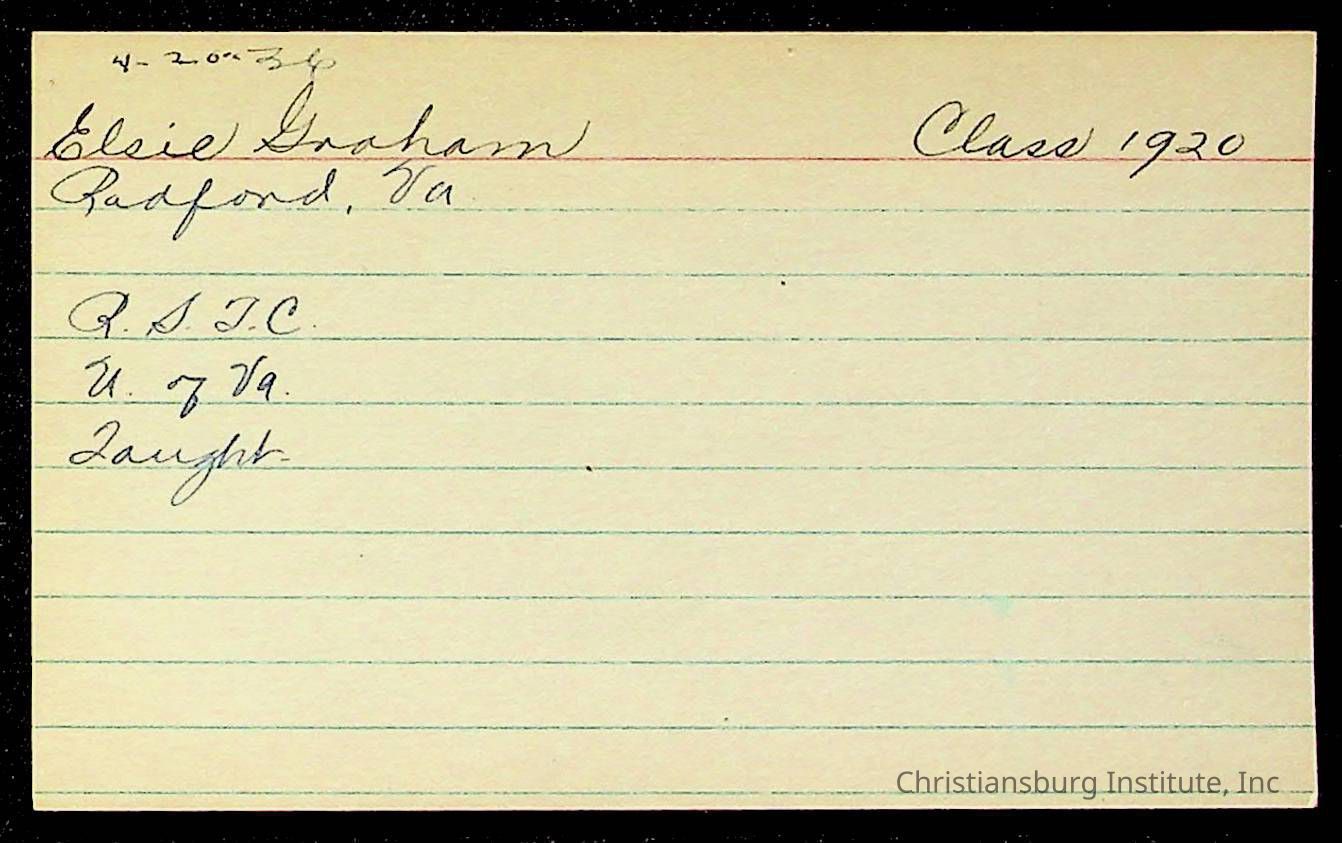 4-20-36
Elsie Graham Class 1920
Radford, Va
R. S. T. C.
U. of Va.
Taught
Christiansburg Institute, Inc